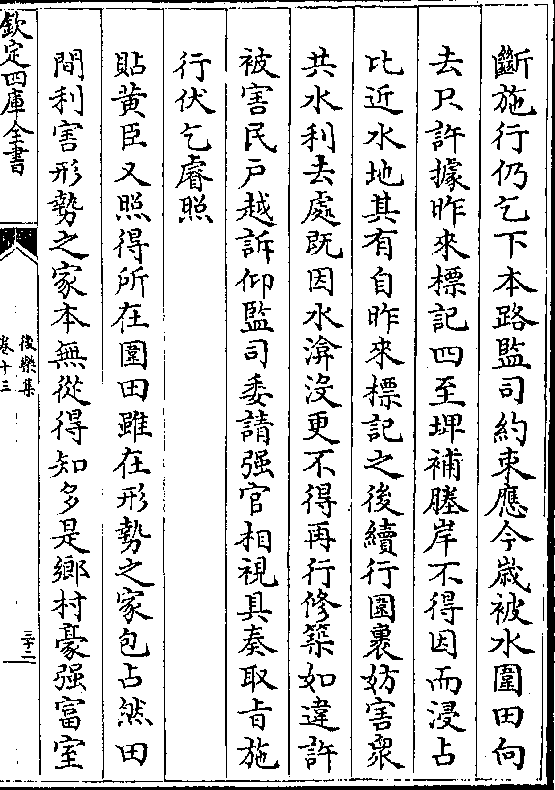 斷施行仍乞下本路監司約束應今歲被水圍田向
去只許據昨來標記四至埤補塍岸不得因而浸占
比近水地其有自昨來標記之後續行圍裹妨害衆
共水利去處既因水渰没更不得再行修築如違許
被害民戶越訴仰監司委請强官相視具奏取旨施
行伏乞睿照
貼黄臣又照得所在圍田雖在形勢之家包占然田
間利害形勢之家本無從得知多是鄉村豪强富室
欽定四庫全書
後樂集
卷十三
三十二